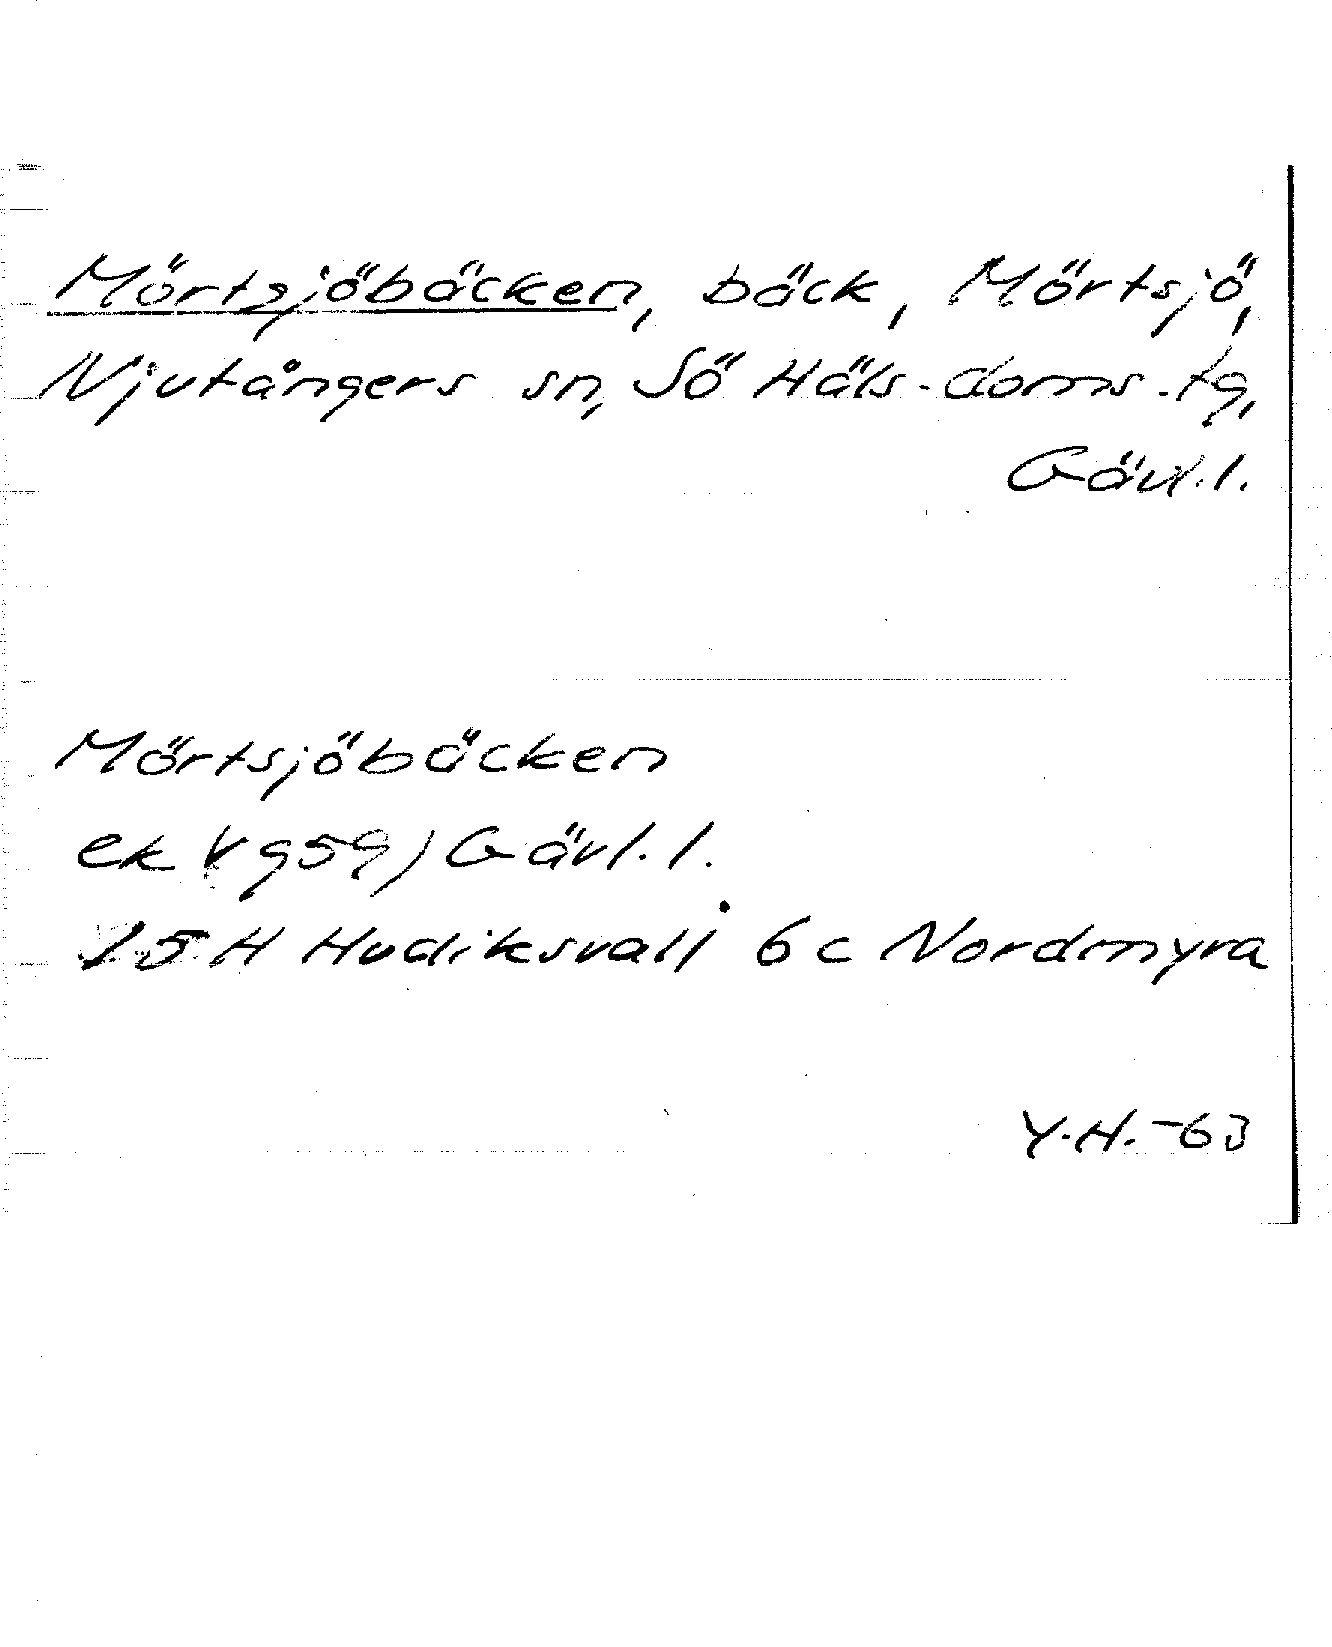 Mörtsjöbäcken, bäck, Mörtsjö,
Njutångers sn, Sö Häls. doms. tg,
Gävl. l.
Mörtsjöbäcken
ek (1959) Gävl. l.
15 H Hudiksvall 6 c Nordmyra
Y.H. -63